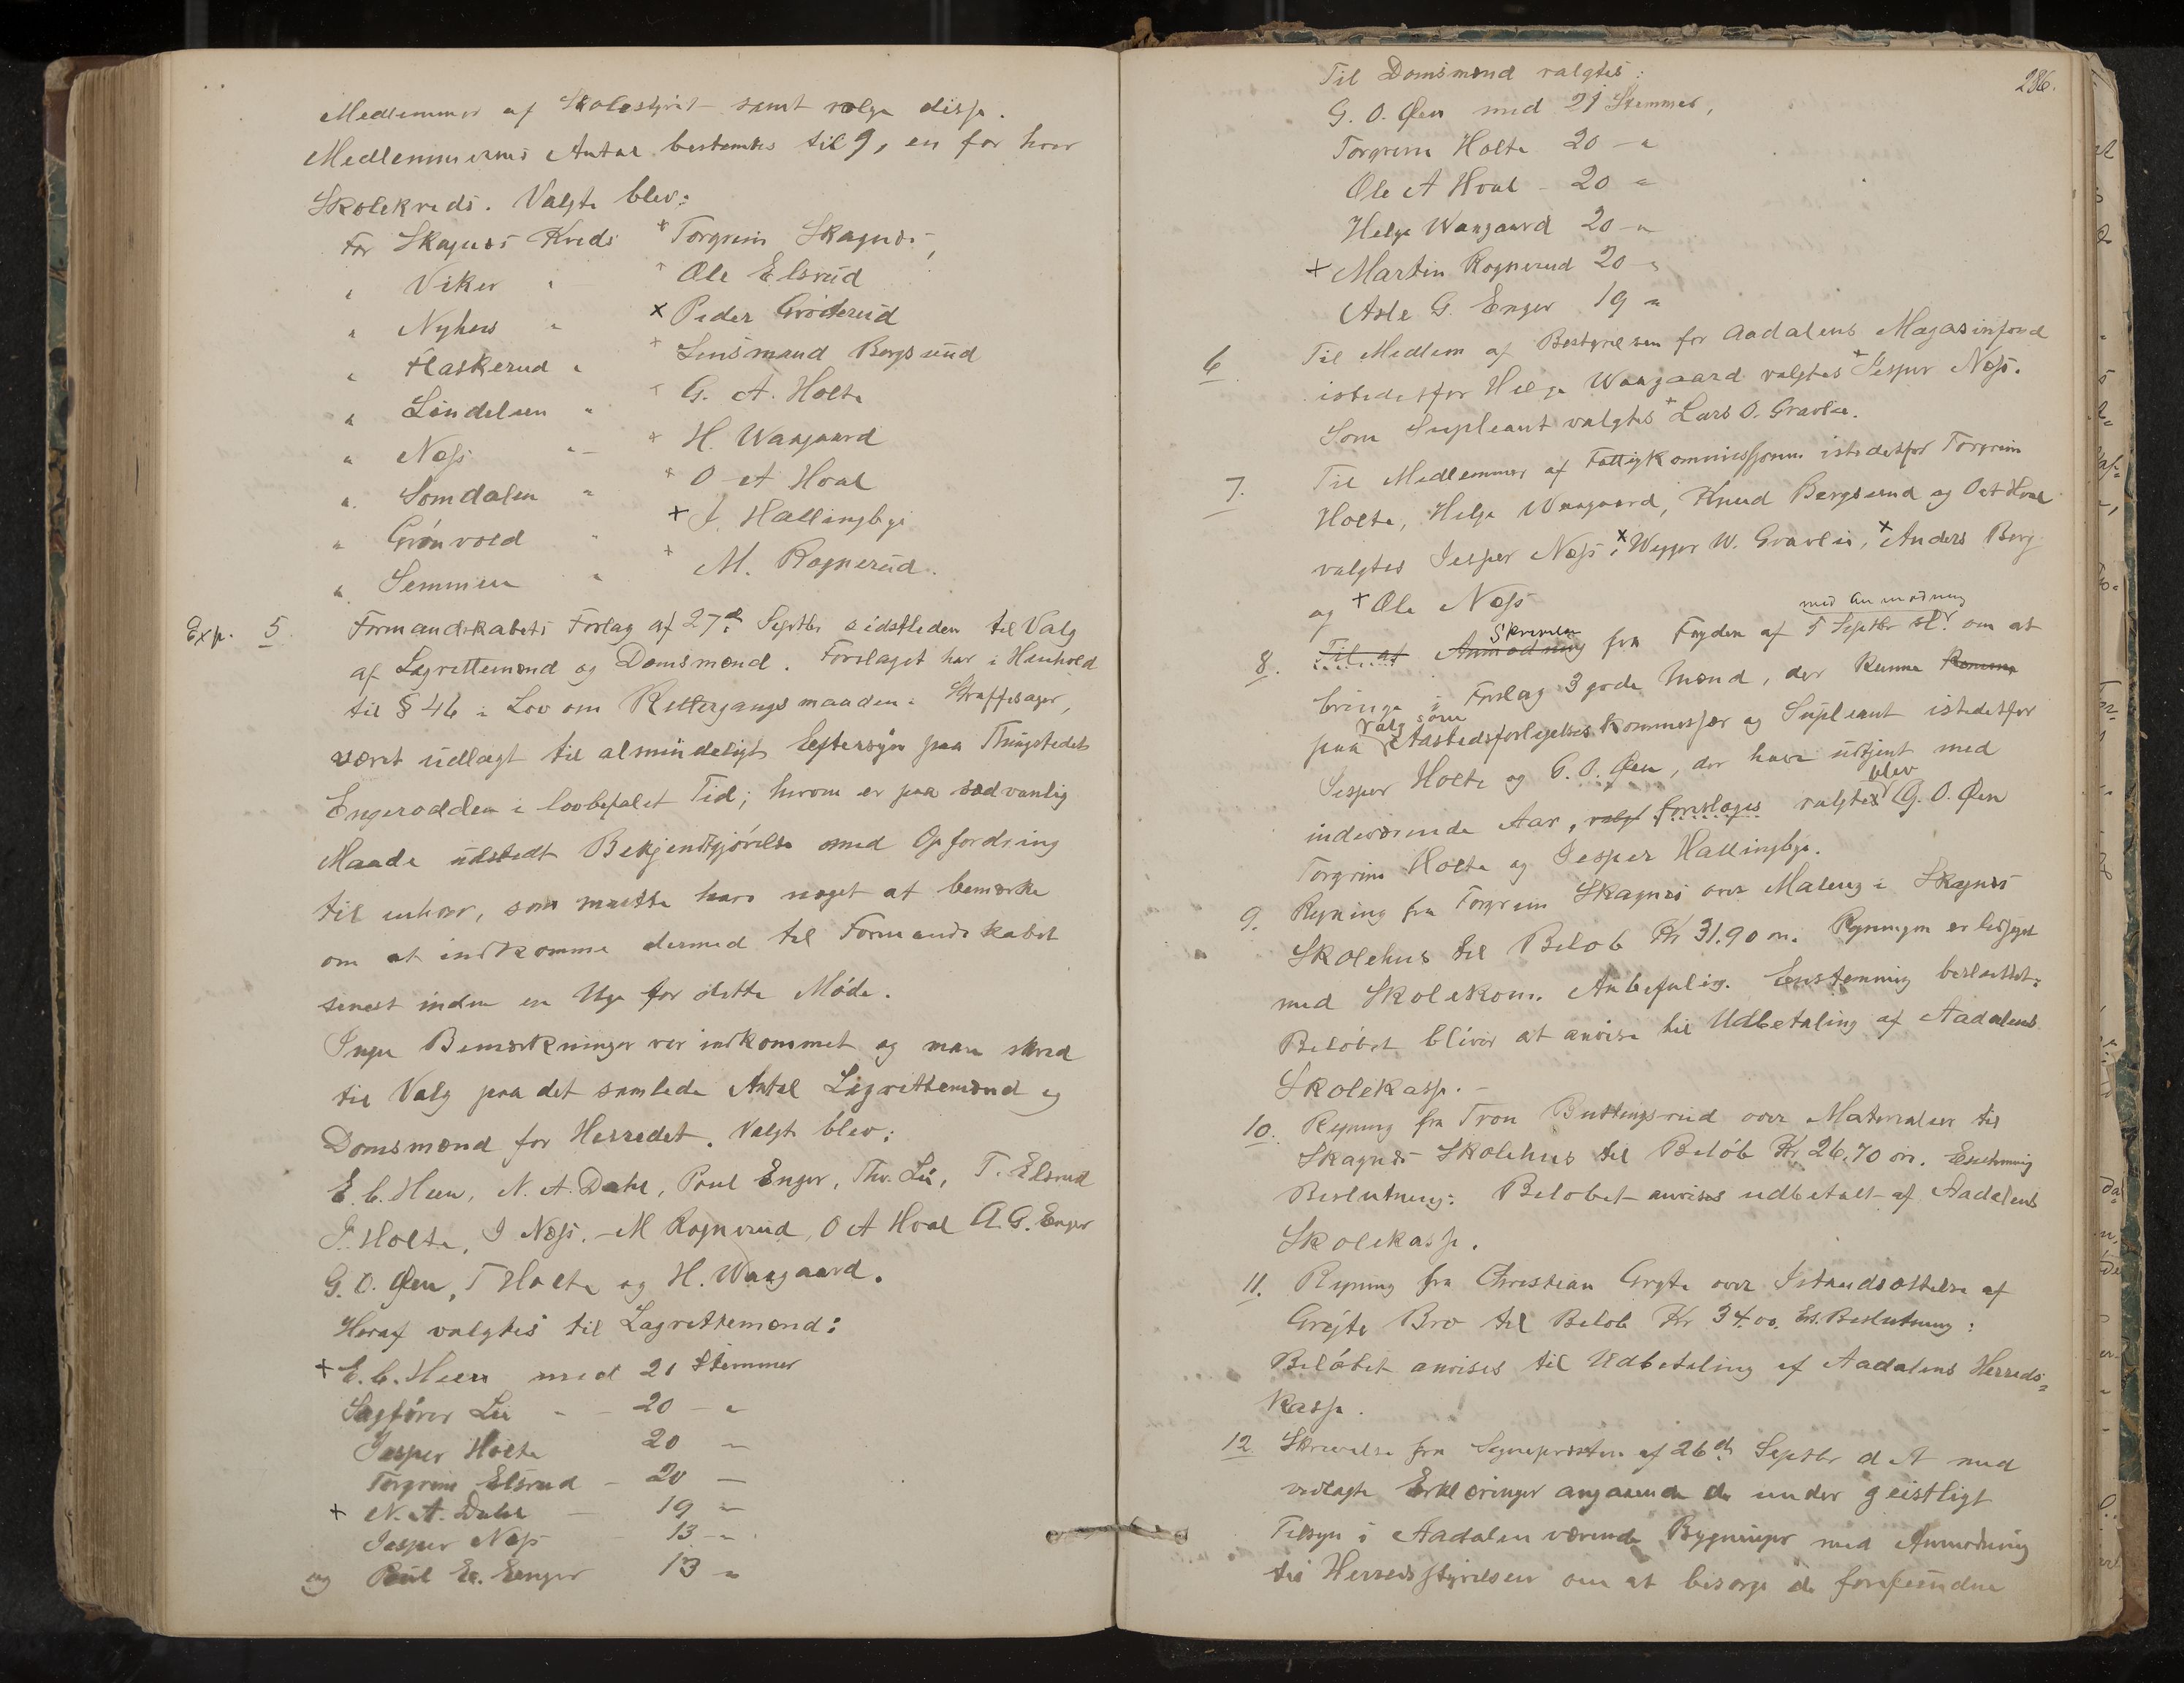 Medlemmer af Skolestyret samt vælge disse.
Medlemmernes Antal bestemtes til 9, en for hver
Skolekreds. Valgte blev:
For Skagnæs Kreds + Torgrim Skagnæs,
" Viker " + Ole Elsrud
" Nyhus " × Peder Grøterud
" Haskerud " + Lensmand Bergsund
" Lindelien " + G. A. Holte
" Næss " + H. Waagaard
" Somdalen " + O A Hval
" Grönvold " + J. Hallingbye
" Semmen " + M. Rognerud.
Exp. 5. Formandskabets Forslag af 27de Septbr sidstleden til Valg
af Lagrettemænd og Domsmænd. Forslaget har i Henhold
til § 46 i Lov om Rettergangsmaaden i Straffesager,
været udlagt til almindeligt Eftersyn paa Thingstedet
Engerodden i lovbefalet Tid; herom er paa sædvanlig
Maade udstedt Bekjendtgjörelse med Opfordring
til enhver, som maatte have noget at bemærke
om at indkomme dermed til Formandskabet
senest inden en Uge for dette Möde.
Ingen Bemærkninger var indkommet og man skred
til Valg paa det samlede Antal Lagrettemænd og
Domsmænd for Herredet. Valgt blev:
E. C. Heen, N. A. Dahl, Poul Enger, Thv. Lie, T. Elsrud
J. Holte, J Næss, M Rognerud, O A Hval A. G. Enger
G. O. Øen, T Holte og H. Waagaard.
Heraf valgtes til Lagrettemænd:
+ E. C. Heen med 21 Stemmer
Sagförer Lie - - 20 - "
Jesper Holte 20 "
Torgrim Elsrud - 20 -
+ N. A. Dahl - 19 "
Jesper Næss - 13 - "
og Poul E. Enger 13 "
286.
Til Domsmænd valgtes:
G. O. Øen med 21 Stemmer,
Torgrim Holte 20 - "
Ole A Hval - 20 "
Helge Waagaard 20 - "
+ Martin Rognerud 20 - "
Asle G. Enger 19 "
6. Til Medlem af Bestyrelsen for Aadalens Magasinfond
istedetfor Helge Waagaard valgtes + Jesper Næss.
Som Supleant valgtes + Lars O. Gravlie.
7. Til Medlemmer af Fattigkommissionen istedetfor Torgrim
Holte, Helge Waagaard, Knud Bergsund og O A Hval
valgtes Jesper Næss, × Wegger W. Gravlie, × Anders Berg
og + Ole Næss
8. Til at Anmodning Skrivelse fra Fogden af 5 Septbr sl. med Anmodning om at
bringe i Forslag 3 gode Mænd, der kunne kunne
paa Valg som Aastedsforligelseskommissær og Supleant istedetfor
Jesper Holte og G. O. Øen, der have udtjent med
indeværende Aar, valgt foreslages valgtes blev G. O. Øen
Torgrim Holte og Jesper Hallingbye.
9. Regning fra Torgrim Skagnæs over Maling i Skagnæs
Skolehus til Belöb Kr 31.90 ør. Regningen er ledsaget
med Skolekom. Anbefaling. Enstemmig besluttet:
Belöbet bliver at anvise til Udbetaling af Aadalens
Skolekasse. -
10. Regning fra Tron Buttingsrud over Materialier til
Skagnæs Skolehus til Belöb Kr. 26.70 ør. Enstemmig
Beslutning: Belöbet anvises udbetalt af Aadalens
Skolekasse.
11. Regning fra Christian Gryte over Istandsættelse af
Gryte Bro til Belöb Kr 34.00. Ens. Beslutning:
Belöbet anvises til Udbetaling af Aadalens Herreds=
kasse.
12 Skrivelse fra Sognepræsten af 26de Septbr d A med
vedlagte Erklæringer angaaende de under geistligt
Tilsyn i Aadalen værende Bygninger med Anmodning
til Herredsstyrelsen om at besørge de forefundne